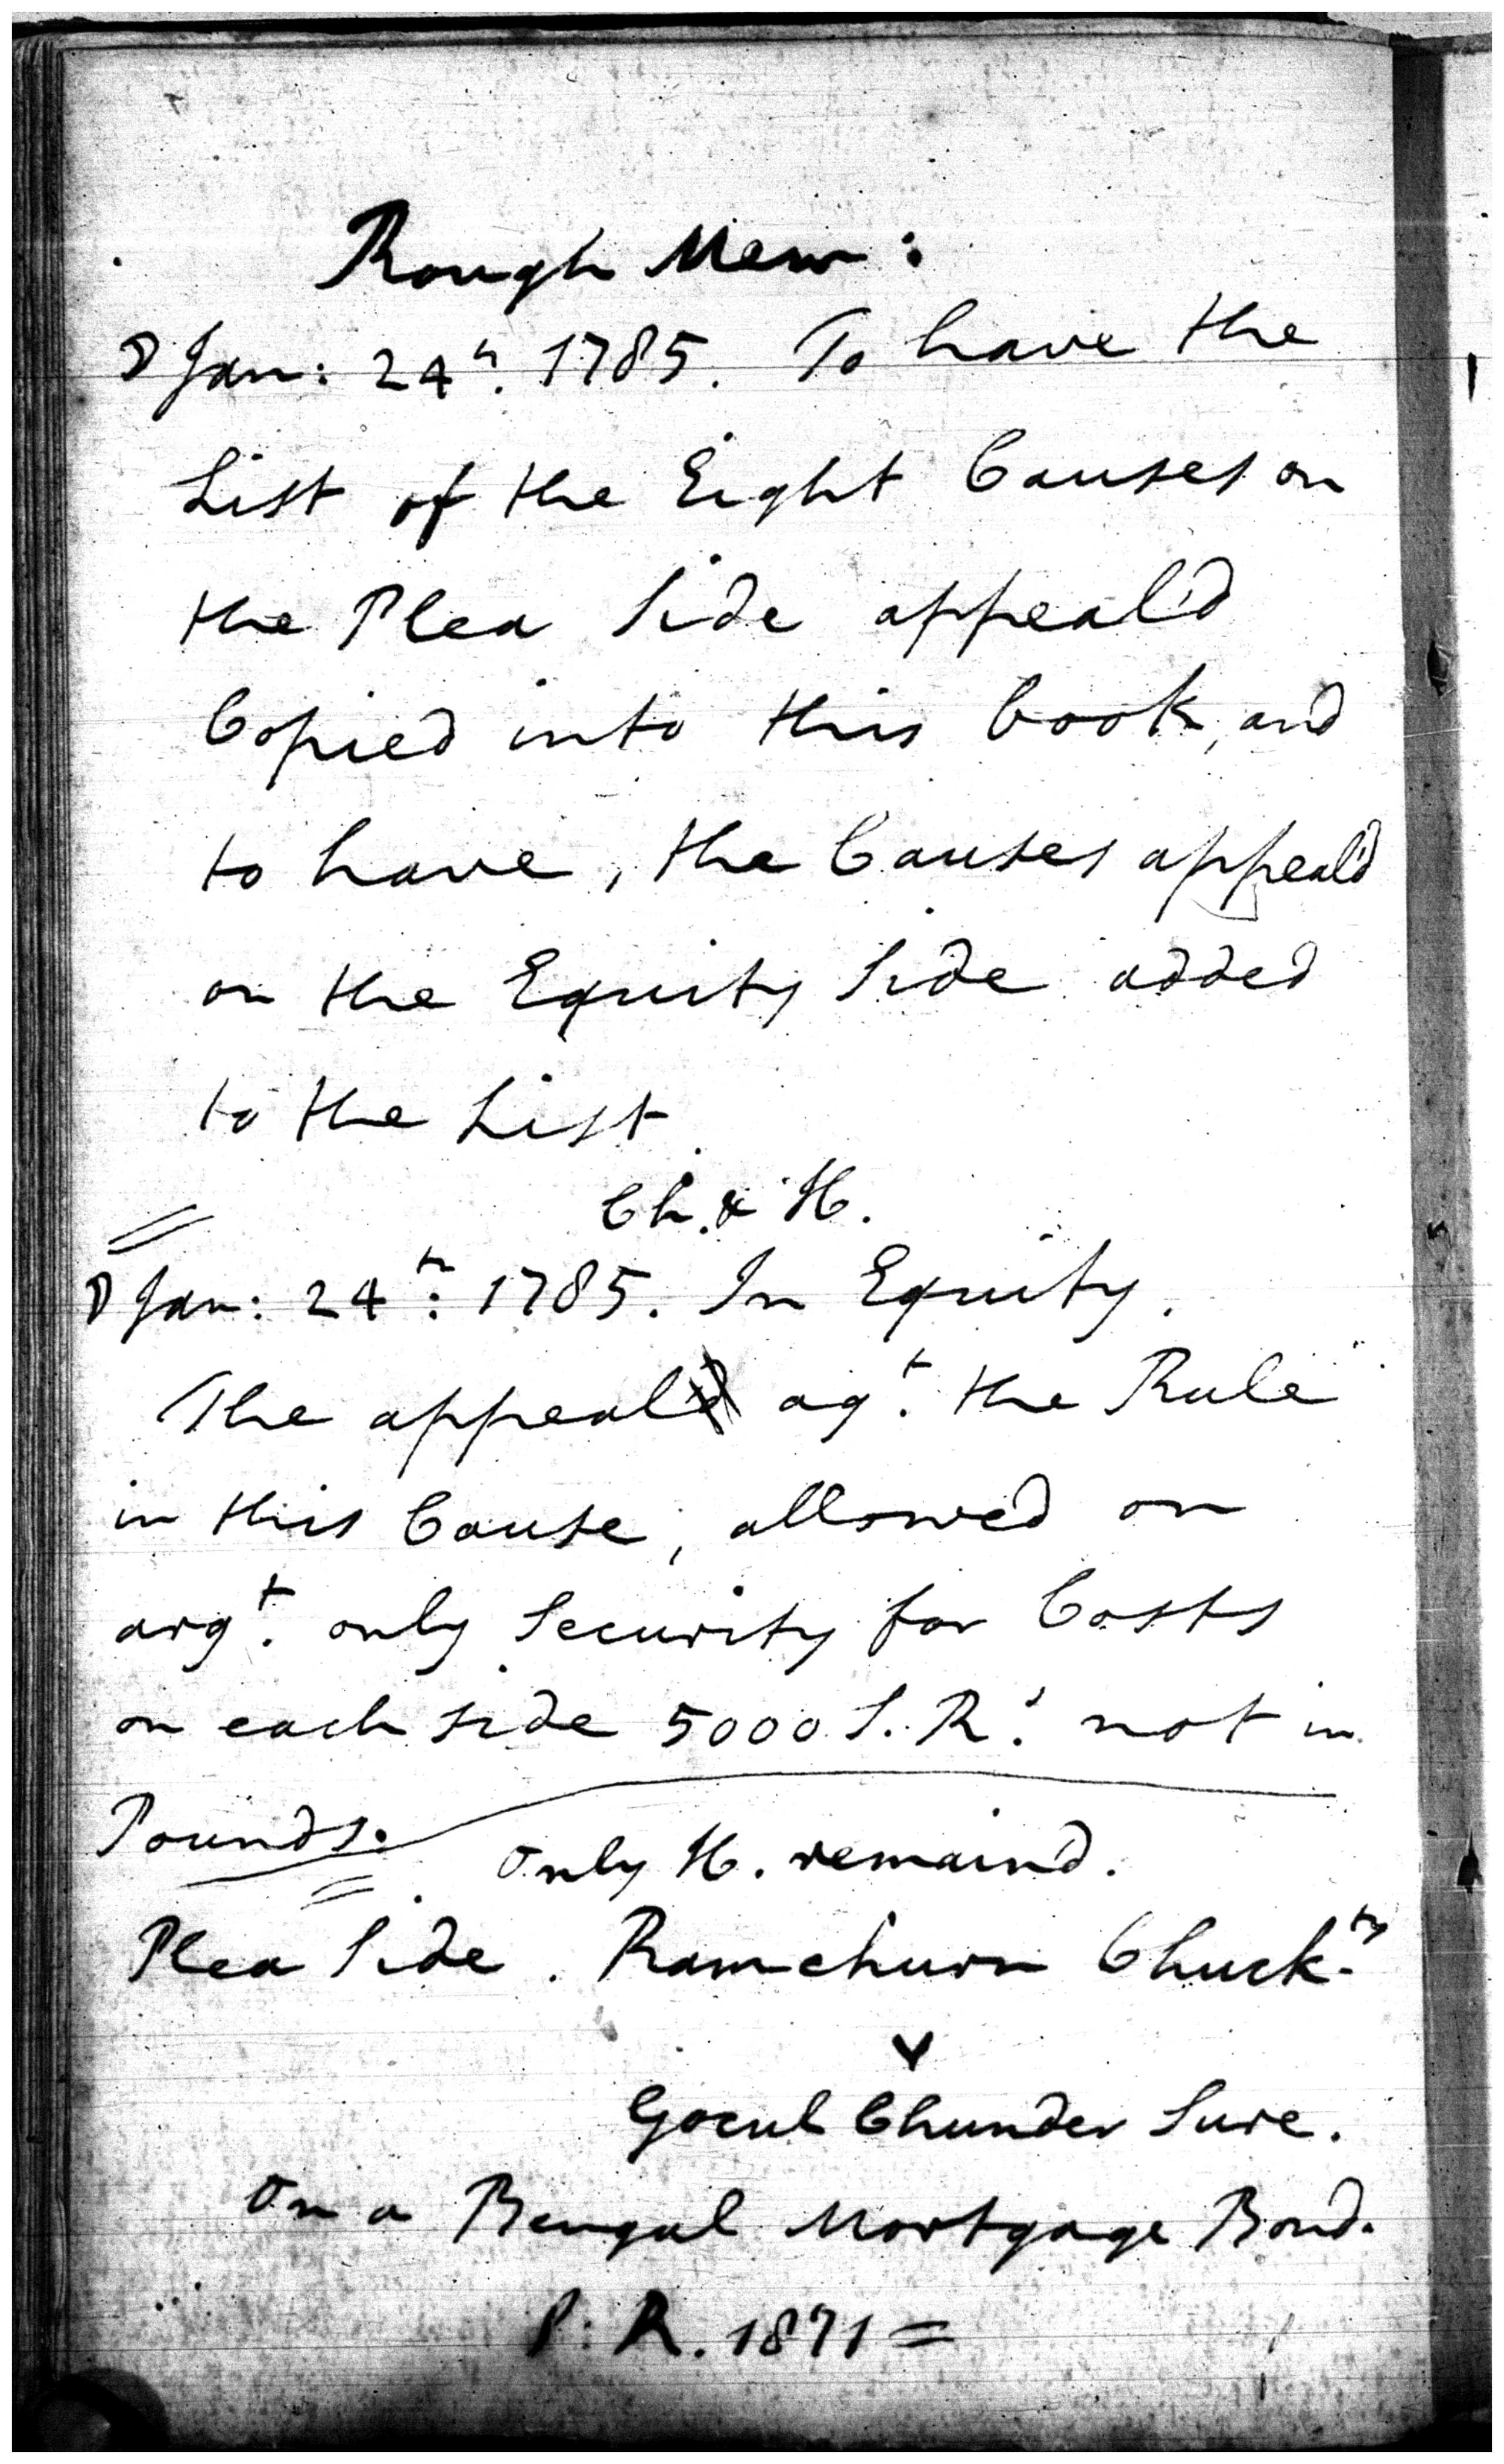 Rough Mem:
☽ Jan: 24th. 1785. To have the
List of the Eight Causes on
the Plea Side appeal'd
Copied into this book, and
to have, the Causes appeal'd
on the Equity Side added
to the List.
Ch. & H.
☽ Jan: 24th: 1785. In Equity.
The appeal agt. the Rule
in this Cause, allowed on
argt. only Security for Costs
on each side 5000 S. Rs. not in
Pounds.
Only H. remaind.
Plea Side. Ramchurn Chuckty
v
Gocul Chunder Sure.
On a Bengal Mortgage Bond.
S: R. 1871=